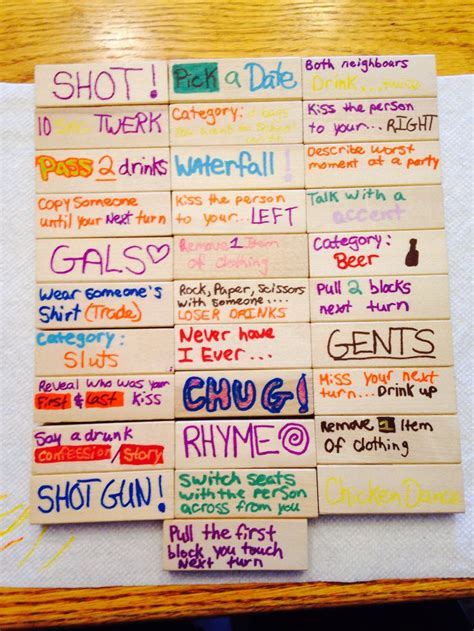 SHOT!
Pick a Date
Both neighbours
Drink... twice
10 Sec. TWERK
Category:
Kiss the person
to your... RIGHT
Pass 2 drinks
Waterfall!
Describe worst
moment at a party
Copy Someone
until your Next turn
Kiss the person
to your... LEFT
Talk with a
accent
GALS
Remove 1 Item
of clothing
Category:
Beer
Wear Someone's
Shirt (Trade)
Rock, Paper, Scissors
with Someone....
LOSER DRINKS
Pull 2 blocks
next turn
Category:
Sluts
Never have
I Ever...
GENTS
Reveal who was your
First & Last Kiss
CHUG!
Miss your next
turn... Drink up
Say a drunk
Confession/Story
RHYME
Remove 1 Item
Of clothing
SHOT GUN!
Switch seats
with the person
across from you
Chicken Dance
Pull the first
block you touch
Next turn